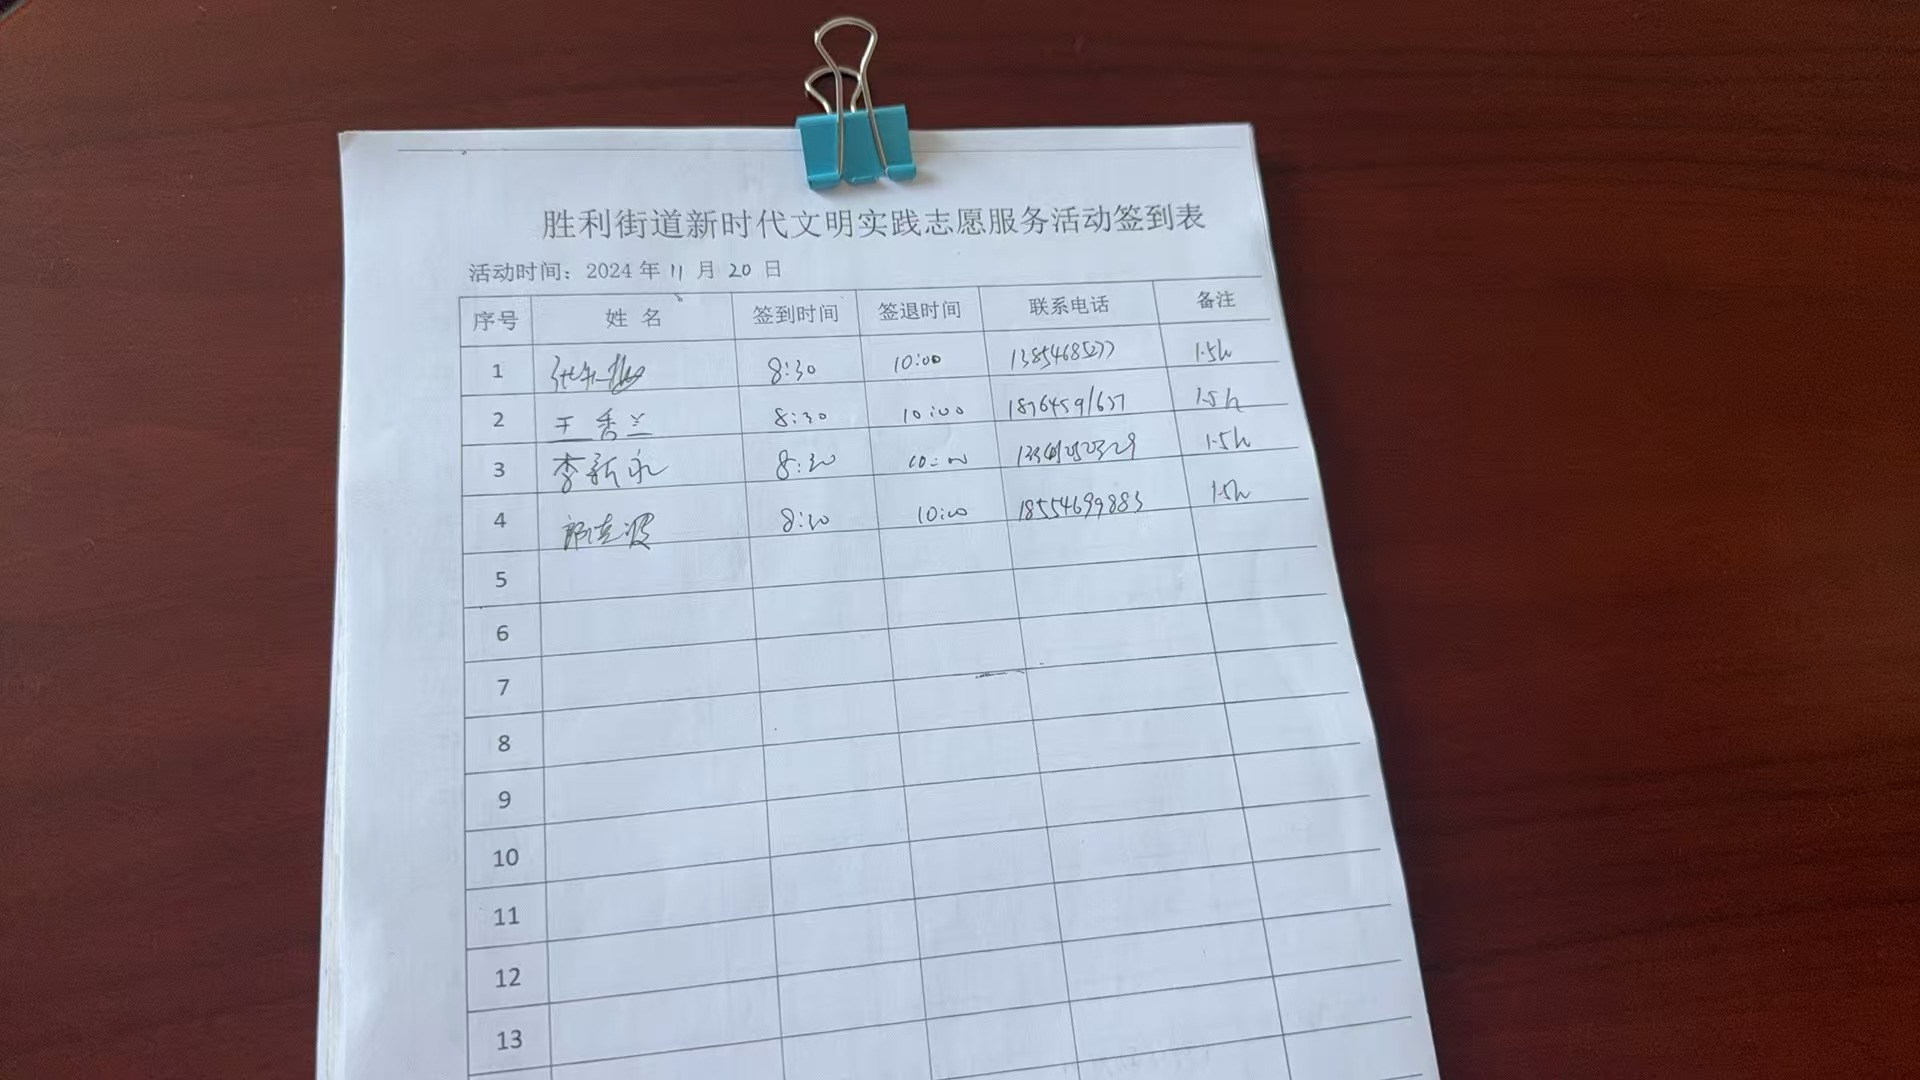 胜利街道新时代文明实践志愿服务活动签到表
活动时间：2024 年 11 月 20 日
序号 姓 名 签到时间 签退时间 联系电话 备注
1 8:30 10:00 1.5h
2 王秀兰 8:30 10:00 18764591637 1.5h
3 李新永 8:30 10:00 1.5h
4 8:30 10:00 18554699883 1.5h
5
6
7
8
9
10
11
12
13